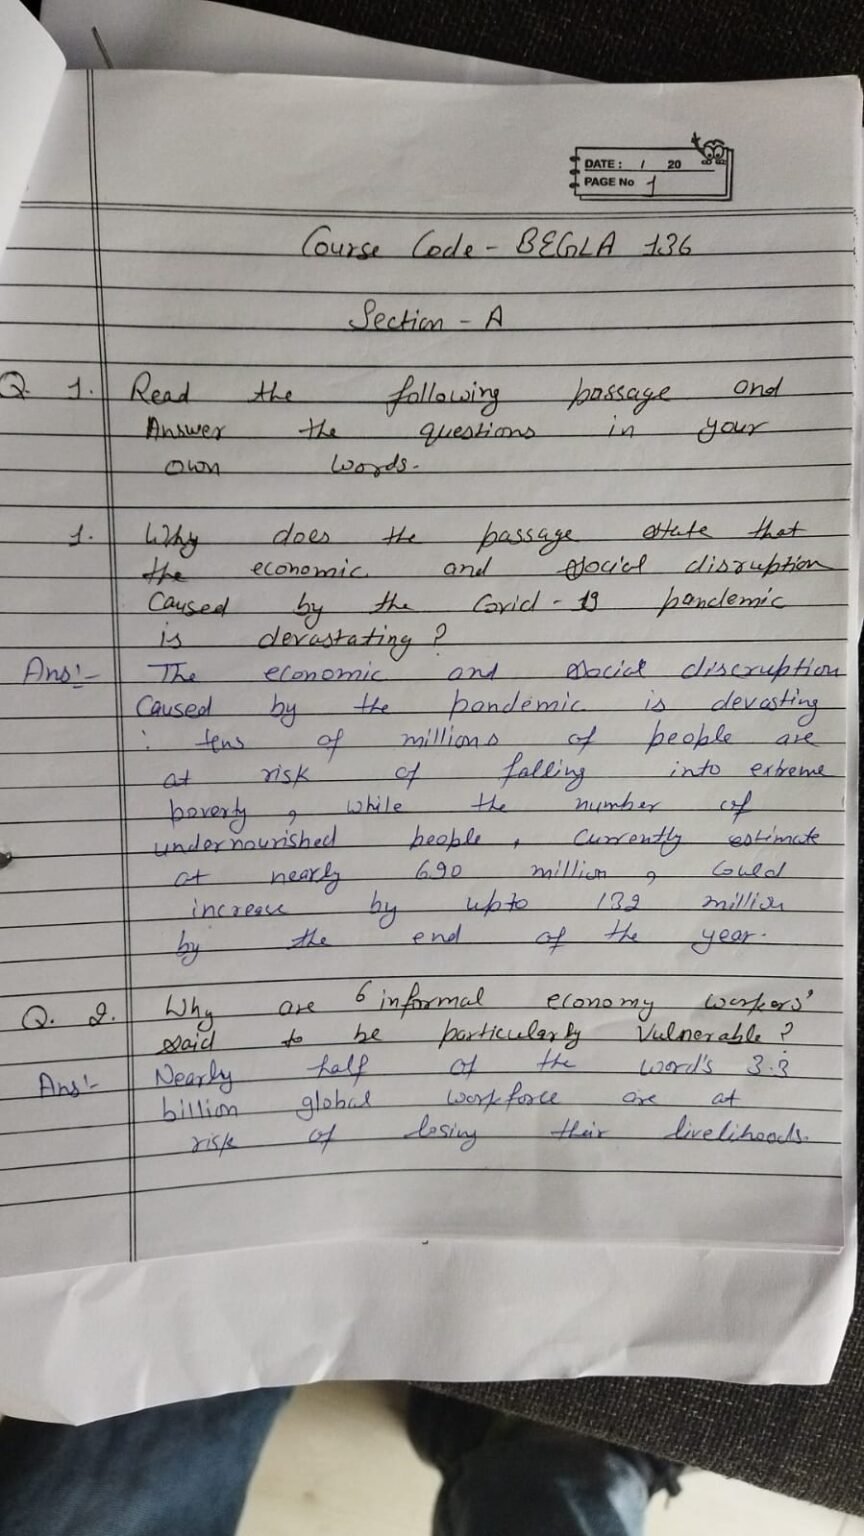 DATE: / 20
PAGE No 1
Course Code - BEGLA 136
Section - A
Q. 1. Read the following passage and
Answer the questions in your
own words.
1. Why does the passage state that
the economic and social disruption
Caused by the Covid - 19 pandemic
is devastating ?
Ans:- The economic and social discruption
Caused by the pandemic is devasting
: tens of millions of people are
at risk of falling into extreme
poverty, while the number of
undernourished people, Currently estimate
at nearly 690 million, Could
increase by upto 132 million
by the end of the year.
Q. 2. Why are 6 informal economy workers'
said to be particularly Vulnerable ?
Ans:- Nearly half of the word's 3.3
billion global workforce are at
risk of losing their livelihoods.